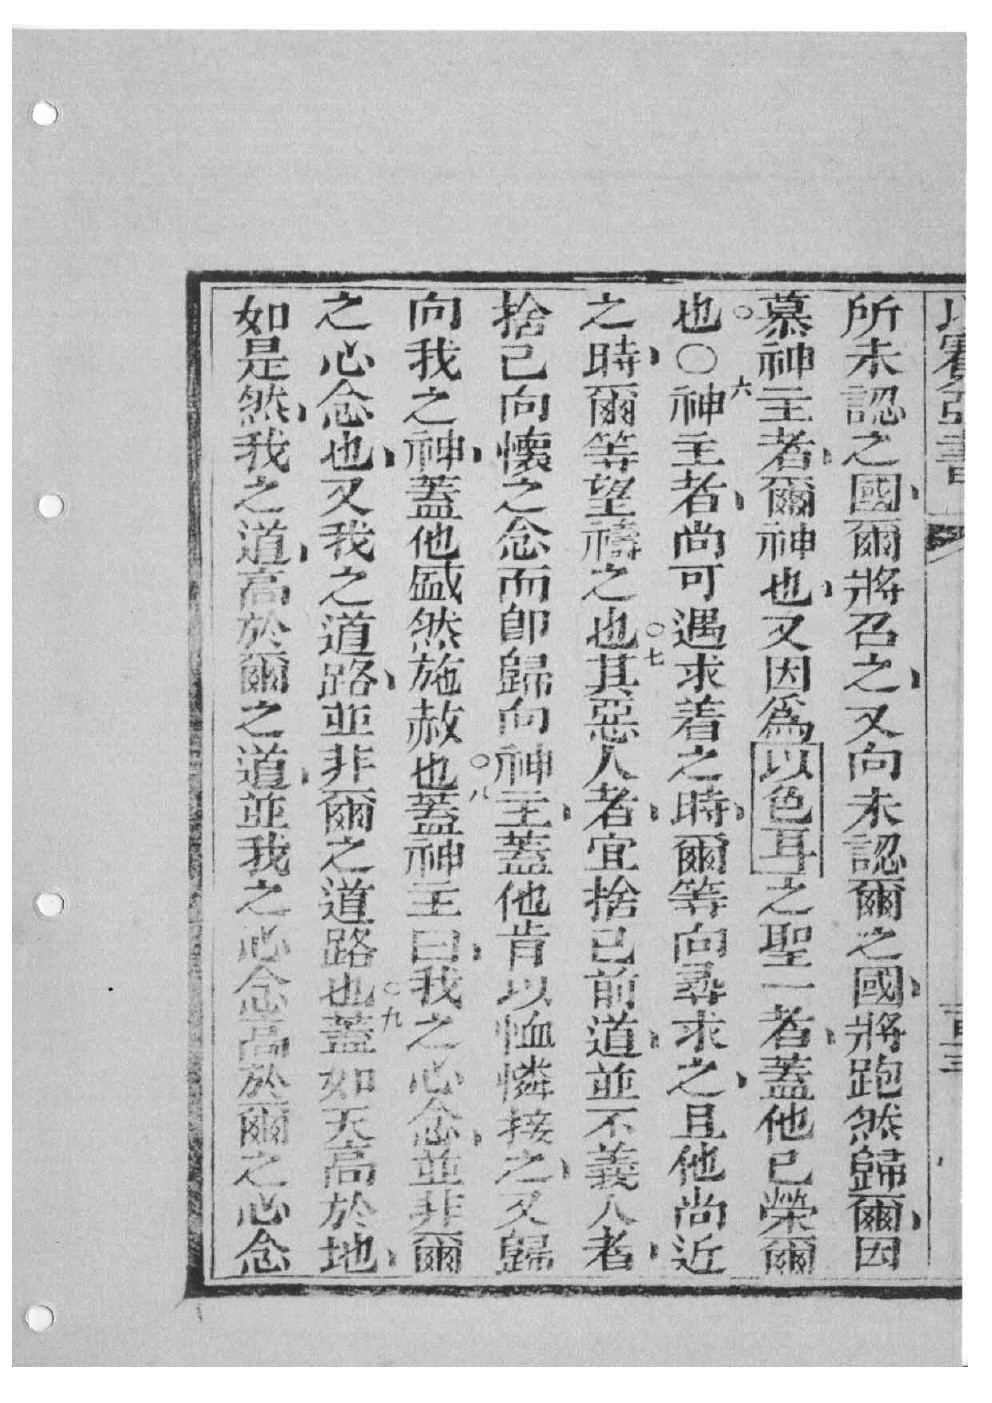 以賽亞書
所未認之國、爾將召之、又向未認爾之國、將跑然歸爾、因
慕神主者、爾神也、又因爲以色耳之聖一者、蓋他已榮爾
也。○六神主者、尚可遇求着之時、爾等向尋求之、且他尚近
之時、爾等望禱之也。七其惡人者、宜捨已前道、並不義人者、
捨己向懷之念、而卽歸向神主、蓋他肯以恤憐接之、又歸
向我之神、蓋他盛然施赦也。八蓋神主曰、我之心念、並非爾
之心念也、又我之道路、並非爾之道路也。九蓋如天高於地、
如是然、我之道、高於爾之道、並我之心念高於爾之心念